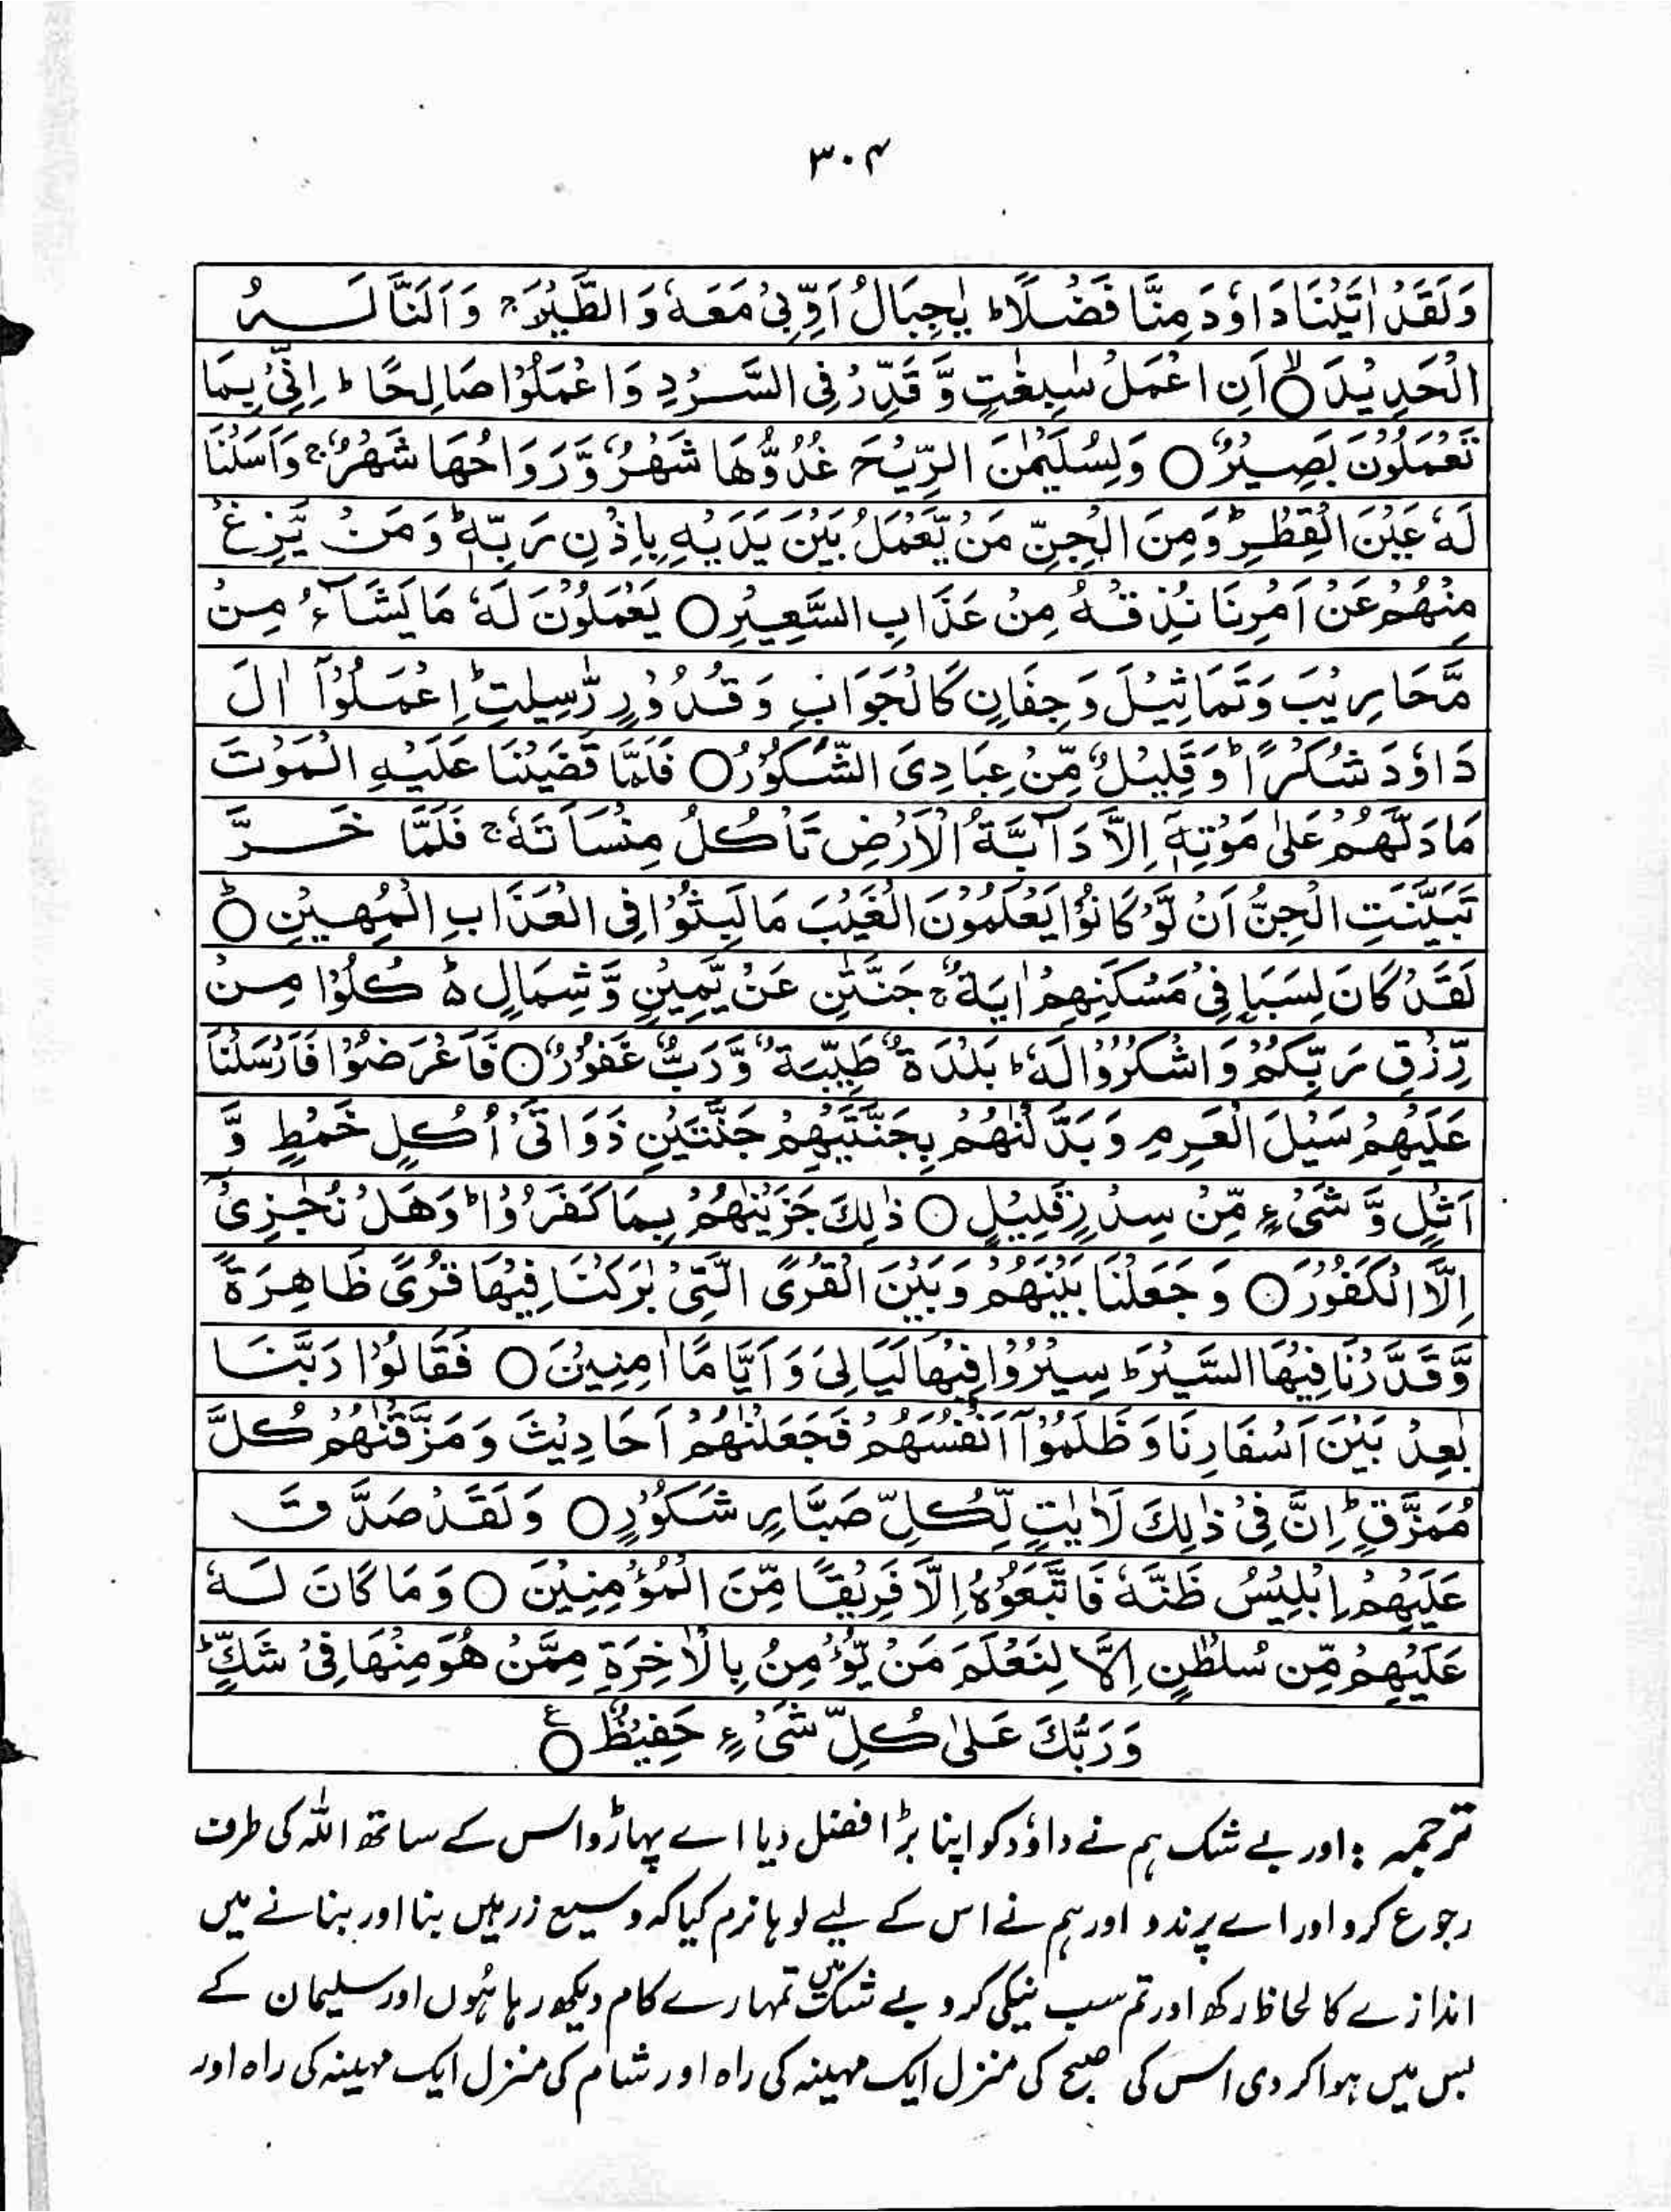 ۳۰۴
وَلَقَدْ اٰتَيْنَا دَاوٗدَ مِنَّا فَضْلًاؕ يٰجِبَالُ اَوِّبِيْ مَعَهٗ وَالطَّيْرَۚ وَاَلَنَّا لَهُ
الْحَدِيْدَۙ○ اَنِ اعْمَلْ سٰبِغٰتٍ وَّقَدِّرْ فِي السَّرْدِ وَاعْمَلُوْا صَالِحًاؕ اِنِّيْ بِمَا
تَعْمَلُوْنَ بَصِيْرٌ○ وَلِسُلَيْمٰنَ الرِّيْحَ غُدُوُّهَا شَهْرٌ وَّرَوَاحُهَا شَهْرٌۚ وَاَسَلْنَا
لَهٗ عَيْنَ الْقِطْرِؕ وَمِنَ الْجِنِّ مَنْ يَّعْمَلُ بَيْنَ يَدَيْهِ بِاِذْنِ رَبِّهٖؕ وَمَنْ يَّزِغْ
مِنْهُمْ عَنْ اَمْرِنَا نُذِقْهُ مِنْ عَذَابِ السَّعِيْرِ○ يَعْمَلُوْنَ لَهٗ مَا يَشَآءُ مِنْ
مَّحَارِيْبَ وَتَمَاثِيْلَ وَجِفَانٍ كَالْجَوَابِ وَقُدُوْرٍ رّٰسِيٰتٍؕ اِعْمَلُوْٓا اٰلَ
دَاوٗدَ شُكْرًاؕ وَقَلِيْلٌ مِّنْ عِبَادِيَ الشَّكُوْرُ○ فَلَمَّا قَضَيْنَا عَلَيْهِ الْمَوْتَ
مَا دَلَّهُمْ عَلٰى مَوْتِهٖٓ اِلَّا دَآبَّةُ الْاَرْضِ تَاْكُلُ مِنْسَاَتَهٗۚ فَلَمَّا خَرَّ
تَبَيَّنَتِ الْجِنُّ اَنْ لَّوْ كَانُوْا يَعْلَمُوْنَ الْغَيْبَ مَا لَبِثُوْا فِي الْعَذَابِ الْمُهِيْنِؕ○
لَقَدْ كَانَ لِسَبَاٍ فِيْ مَسْكَنِهِمْ اٰيَةٌۚ جَنَّتٰنِ عَنْ يَّمِيْنٍ وَّشِمَالٍ۬ؕ كُلُوْا مِنْ
رِّزْقِ رَبِّكُمْ وَاشْكُرُوْا لَهٗؕ بَلْدَةٌ طَيِّبَةٌ وَّرَبٌّ غَفُوْرٌ○ فَاَعْرَضُوْا فَاَرْسَلْنَا
عَلَيْهِمْ سَيْلَ الْعَرِمِ وَبَدَّلْنٰهُمْ بِجَنَّتَيْهِمْ جَنَّتَيْنِ ذَوَاتَيْ اُكُلٍ خَمْطٍ وَّ
اَثْلٍ وَّشَيْءٍ مِّنْ سِدْرٍ قَلِيْلٍ○ ذٰلِكَ جَزَيْنٰهُمْ بِمَا كَفَرُوْاؕ وَهَلْ نُجٰزِيْ
اِلَّا الْكَفُوْرَ○ وَجَعَلْنَا بَيْنَهُمْ وَبَيْنَ الْقُرَى الَّتِيْ بٰرَكْنَا فِيْهَا قُرًى ظَاهِرَةً
وَّقَدَّرْنَا فِيْهَا السَّيْرَؕ سِيْرُوْا فِيْهَا لَيَالِيَ وَاَيَّامًا اٰمِنِيْنَ○ فَقَالُوْا رَبَّنَا
بٰعِدْ بَيْنَ اَسْفَارِنَا وَظَلَمُوْٓا اَنْفُسَهُمْ فَجَعَلْنٰهُمْ اَحَادِيْثَ وَمَزَّقْنٰهُمْ كُلَّ
مُمَزَّقٍؕ اِنَّ فِيْ ذٰلِكَ لَاٰيٰتٍ لِّكُلِّ صَبَّارٍ شَكُوْرٍ○ وَلَقَدْ صَدَّقَ
عَلَيْهِمْ اِبْلِيْسُ ظَنَّهٗ فَاتَّبَعُوْهُ اِلَّا فَرِيْقًا مِّنَ الْمُؤْمِنِيْنَ○ وَمَا كَانَ لَهٗ
عَلَيْهِمْ مِّن سُلْطٰنٍ اِلَّا لِنَعْلَمَ مَنْ يُّؤْمِنُ بِالْاٰخِرَةِ مِمَّنْ هُوَ مِنْهَا فِيْ شَكٍّؕ
وَرَبُّكَ عَلٰى كُلِّ شَيْءٍ حَفِيْظٌ○ع
ترجمہ: اور بے شک ہم نے داؤد کو اپنا بڑا فضل دیا اے پہاڑو اس کے ساتھ اللہ کی طرف
رجوع کرو اور اے پرندو اور ہم نے اس کے لیے لوہا نرم کیا کہ وسیع زرہیں بنا اور بنانے میں
اندازے کا لحاظ رکھ اور تم سب نیکی کرو بے شک میں تمہارے کام دیکھ رہا ہُوں اور سلیمان کے
بس میں ہوا کر دی اس کی صبح کی منزل ایک مہینہ کی راہ اور شام کی منزل ایک مہینہ کی راہ اور